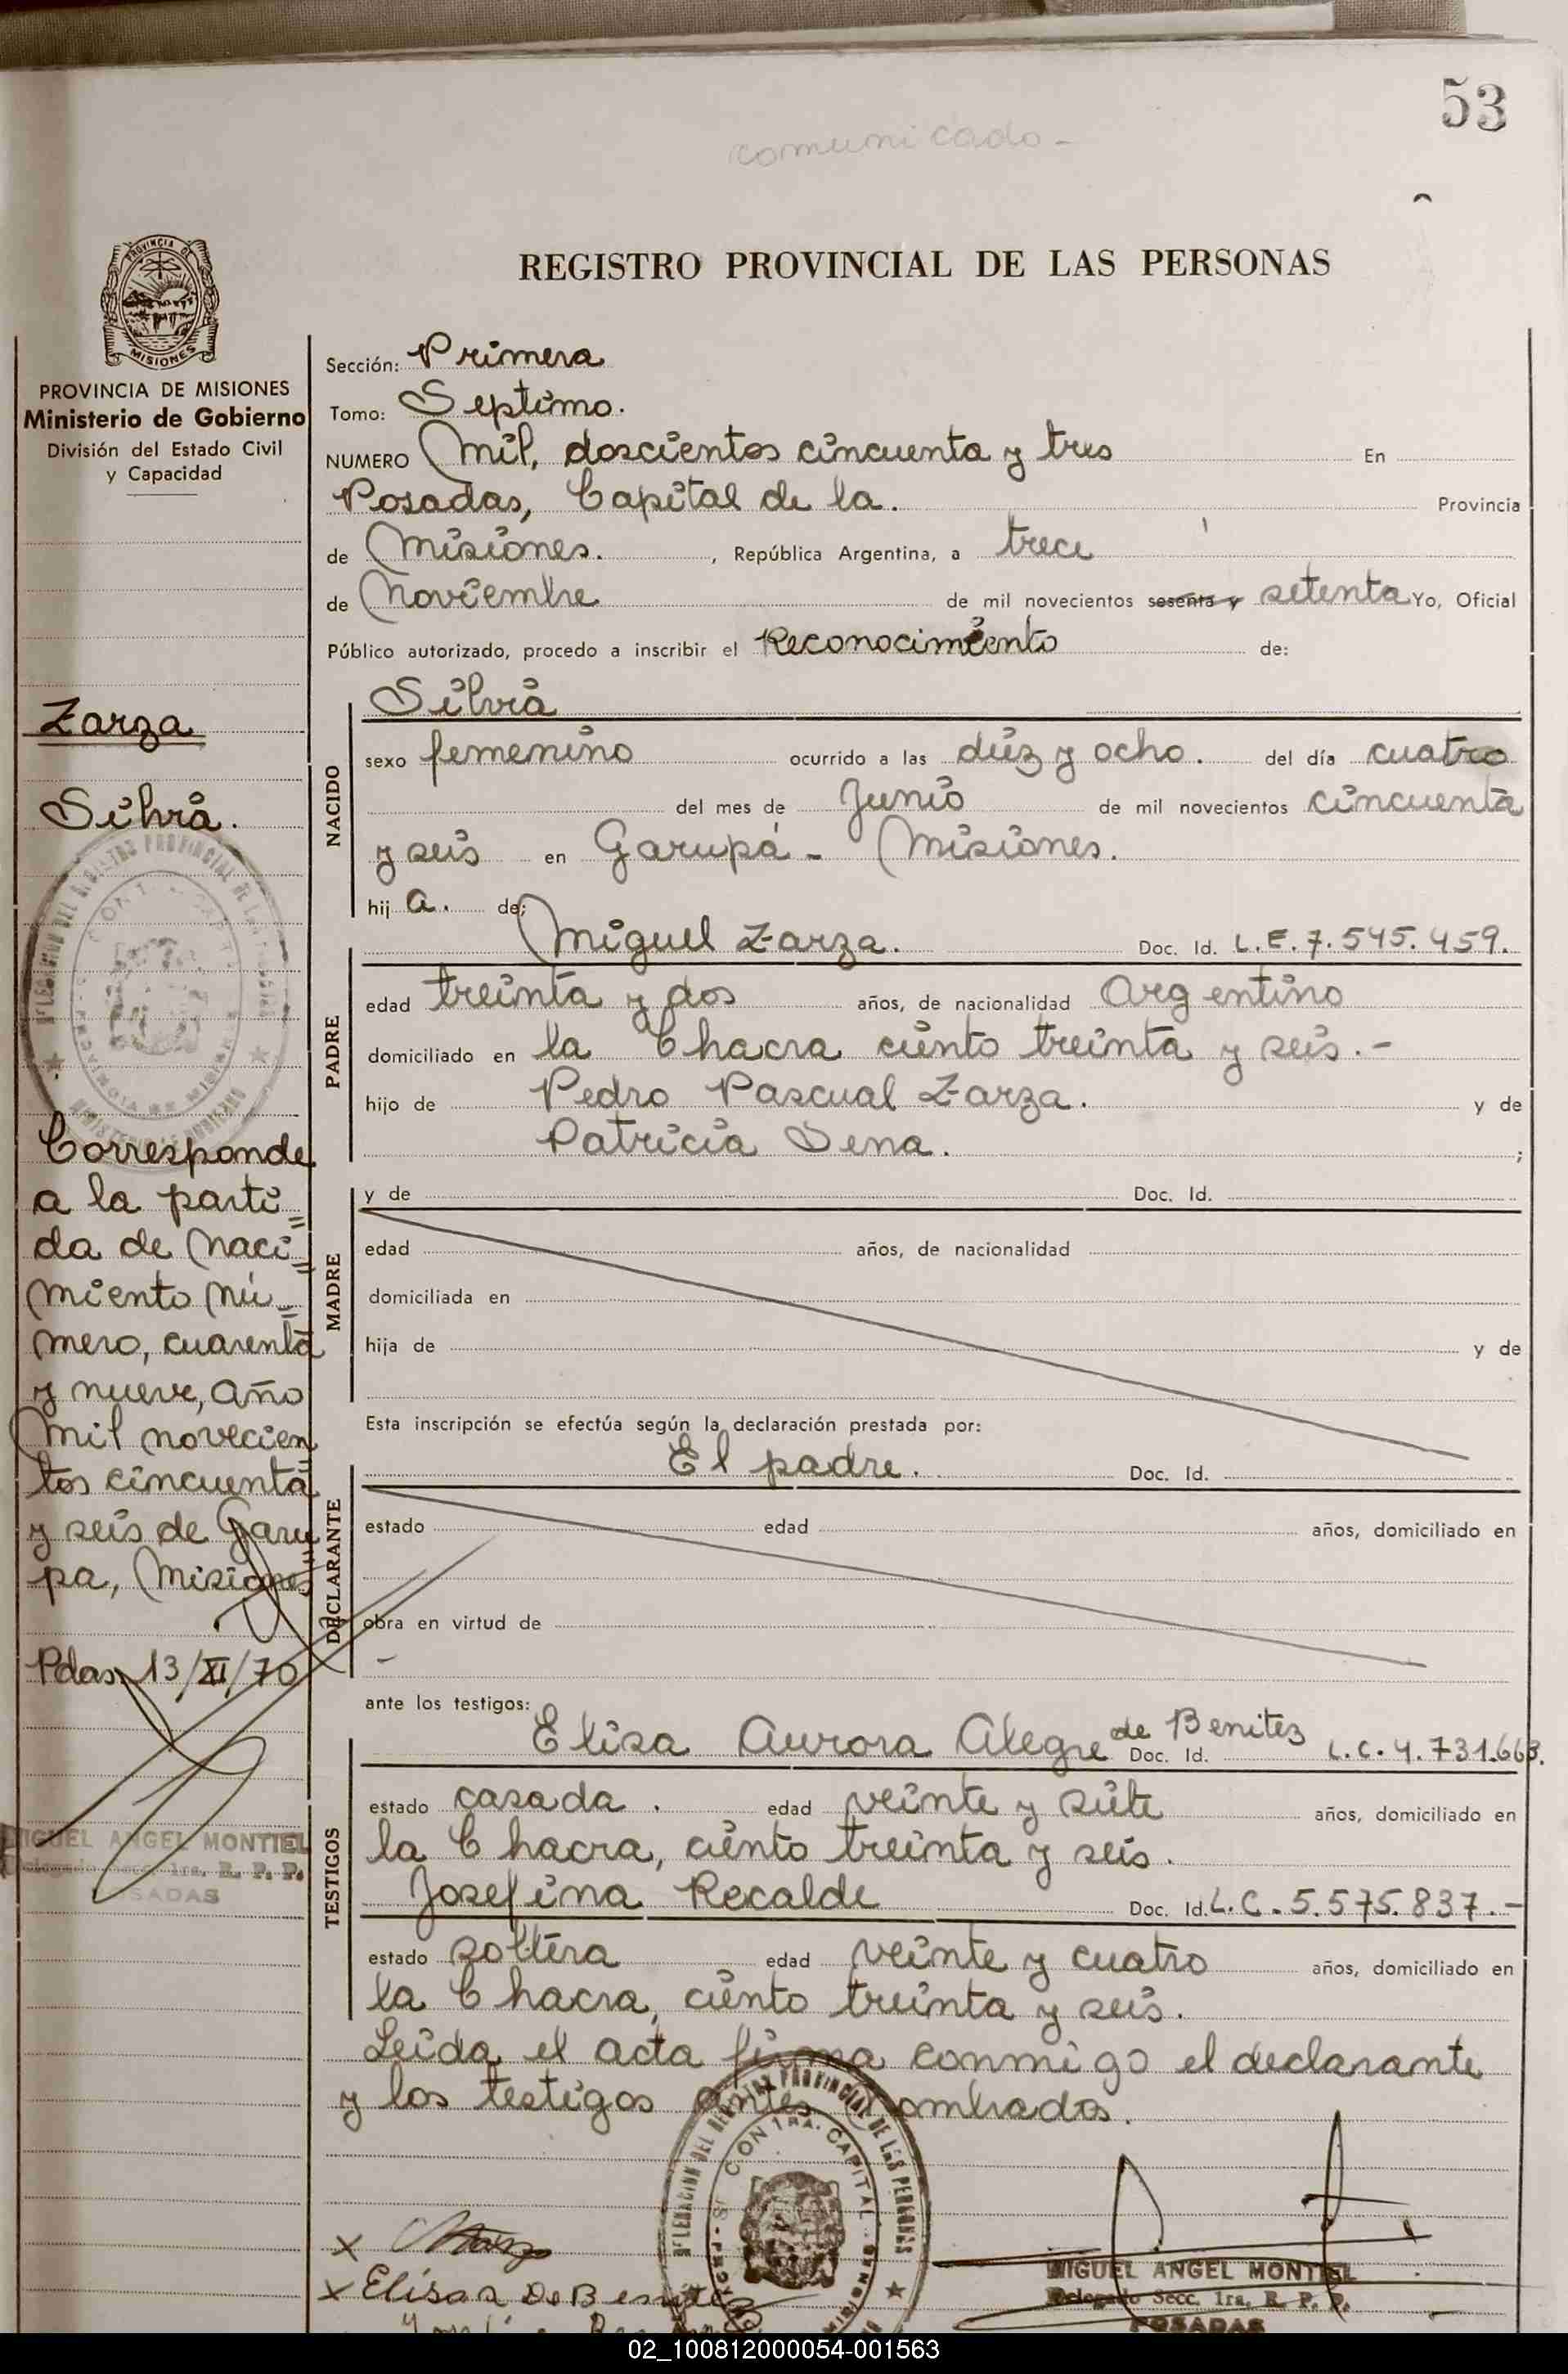 53
comunicado-
REGISTRO PROVINCIAL DE LAS PERSONAS
PROVINCIA DE
MISIONES
PROVINCIA DE MISIONES
Ministerio de Gobierno
División del Estado Civil
y Capacidad
Zarza
Silvia.
Corresponde
a la parti=
da de Naci=
miento Nú=
mero, cuarenta
y nueve, año
mil novecien=
tos cincuenta
y seis de Garu=
pa, Misiones
Pdas, 13/XI/70
MIGUEL ANGEL MONTIEL
Delegado Secc. 1ra. R. P. P.
POSADAS
Sección: Primera
Tomo: Septimo.
NUMERO Mil, doscientos cincuenta y tres En
Posadas, Capital de la. Provincia
de Misiones. , República Argentina, a trece
de Noviembre de mil novecientos sesenta y setenta Yo, Oficial
Público autorizado, procedo a inscribir el Reconocimiento de:
NACIDO
Silvia
sexo femenino ocurrido a las diez y ocho. del día cuatro
del mes de Junio de mil novecientos cincuenta
y seis en Garupá - Misiones.
hij a. de;
PADRE
Miguel Zarza. Doc. Id. L.E. 7.545.459.
edad treinta y dos años, de nacionalidad Argentino
domiciliado en la Chacra ciento treinta y seis.-
hijo de Pedro Pascual Zarza. y de
Patricia Sena. ;
MADRE
y de Doc. Id.
edad años, de nacionalidad
domiciliada en
hija de y de
Esta inscripción se efectúa según la declaración prestada por:
DECLARANTE
El padre. Doc. Id.
estado edad años, domiciliado en
obra en virtud de
-
ante los testigos:
TESTIGOS
Elisa Aurora Alegre de Benitez Doc. Id. L.C. 4.731.663.
estado casada. edad veinte y siete años, domiciliado en
la Chacra, ciento treinta y seis.
Josefina Recalde Doc. Id. L.C. 5.575.837.-
estado soltera edad veinte y cuatro años, domiciliado en
la Chacra, ciento treinta y seis.
Leida el acta firma conmigo el declarante
y los testigos antes Nombrados.
DELEGACION DEL REGISTRO PROVINCIAL DE LAS PERSONAS
x
x Elisa A De Benitez
MIGUEL ANGEL MONTIEL
Delegado Secc. 1ra. R. P. P.
POSADAS
02_100812000054-001563